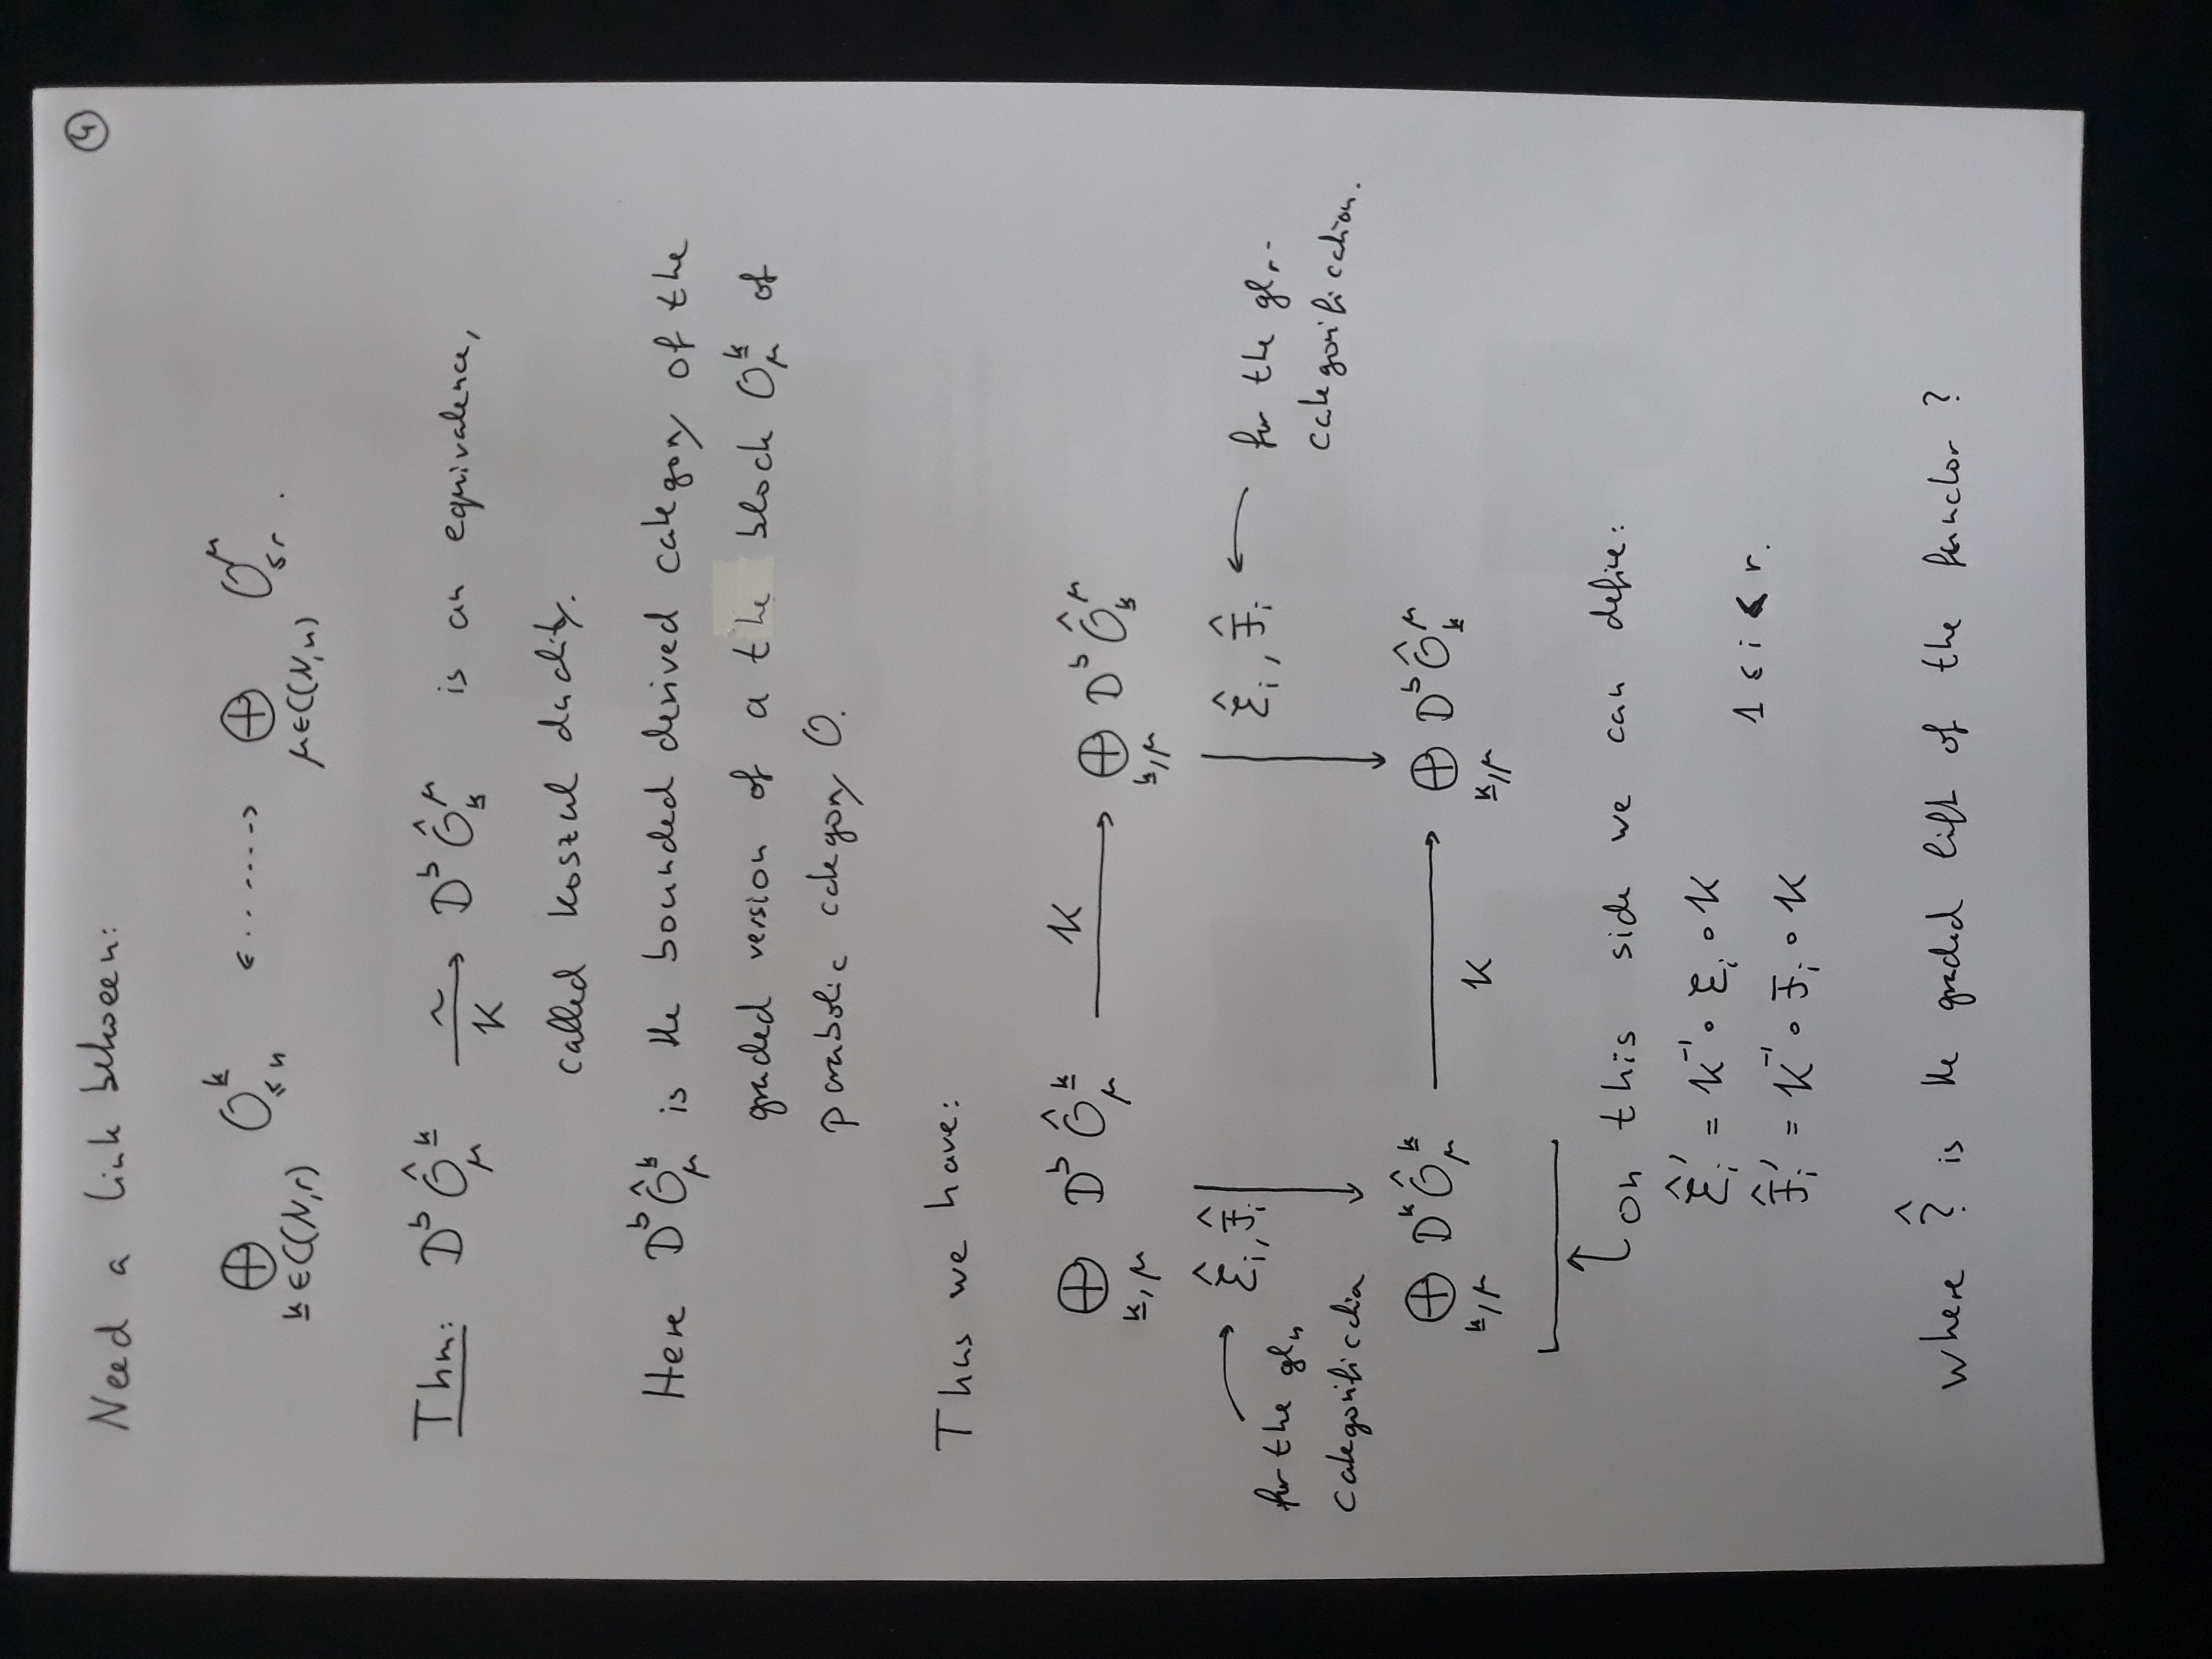 ④
Need a link between:
⊕ O^k_{≤n} <······> ⊕ O^μ_{≤r} .
k∈C(N,r) μ∈C(N,n)
Thm: D^b Ô^k_μ →^~_K D^b Ô^μ_k is an equivalence,
called Koszul duality.
Here D^b Ô^k_μ is the bounded derived category of the
graded version of a the block O^k_μ of
parabolic category O.
Thus we have:
⊕ D^b Ô^k_μ —K→ ⊕ D^b Ô^μ_k
k,μ k,μ
Ê_i, F̂_i ↓ ↓ Ê_i, F̂_i
for the gl_n
categorification
for the gl_r-
categorification.
⊕ D^k Ô^k_μ —K→ ⊕ D^b Ô^μ_k
k,μ k,μ
on this side we can define:
Ê_i' = K^{-1} ∘ E_i ∘ K
1 ≤ i < r.
F̂_i' = K^{-1} ∘ F_i ∘ K
where ?̂ is the graded lift of the functor ?